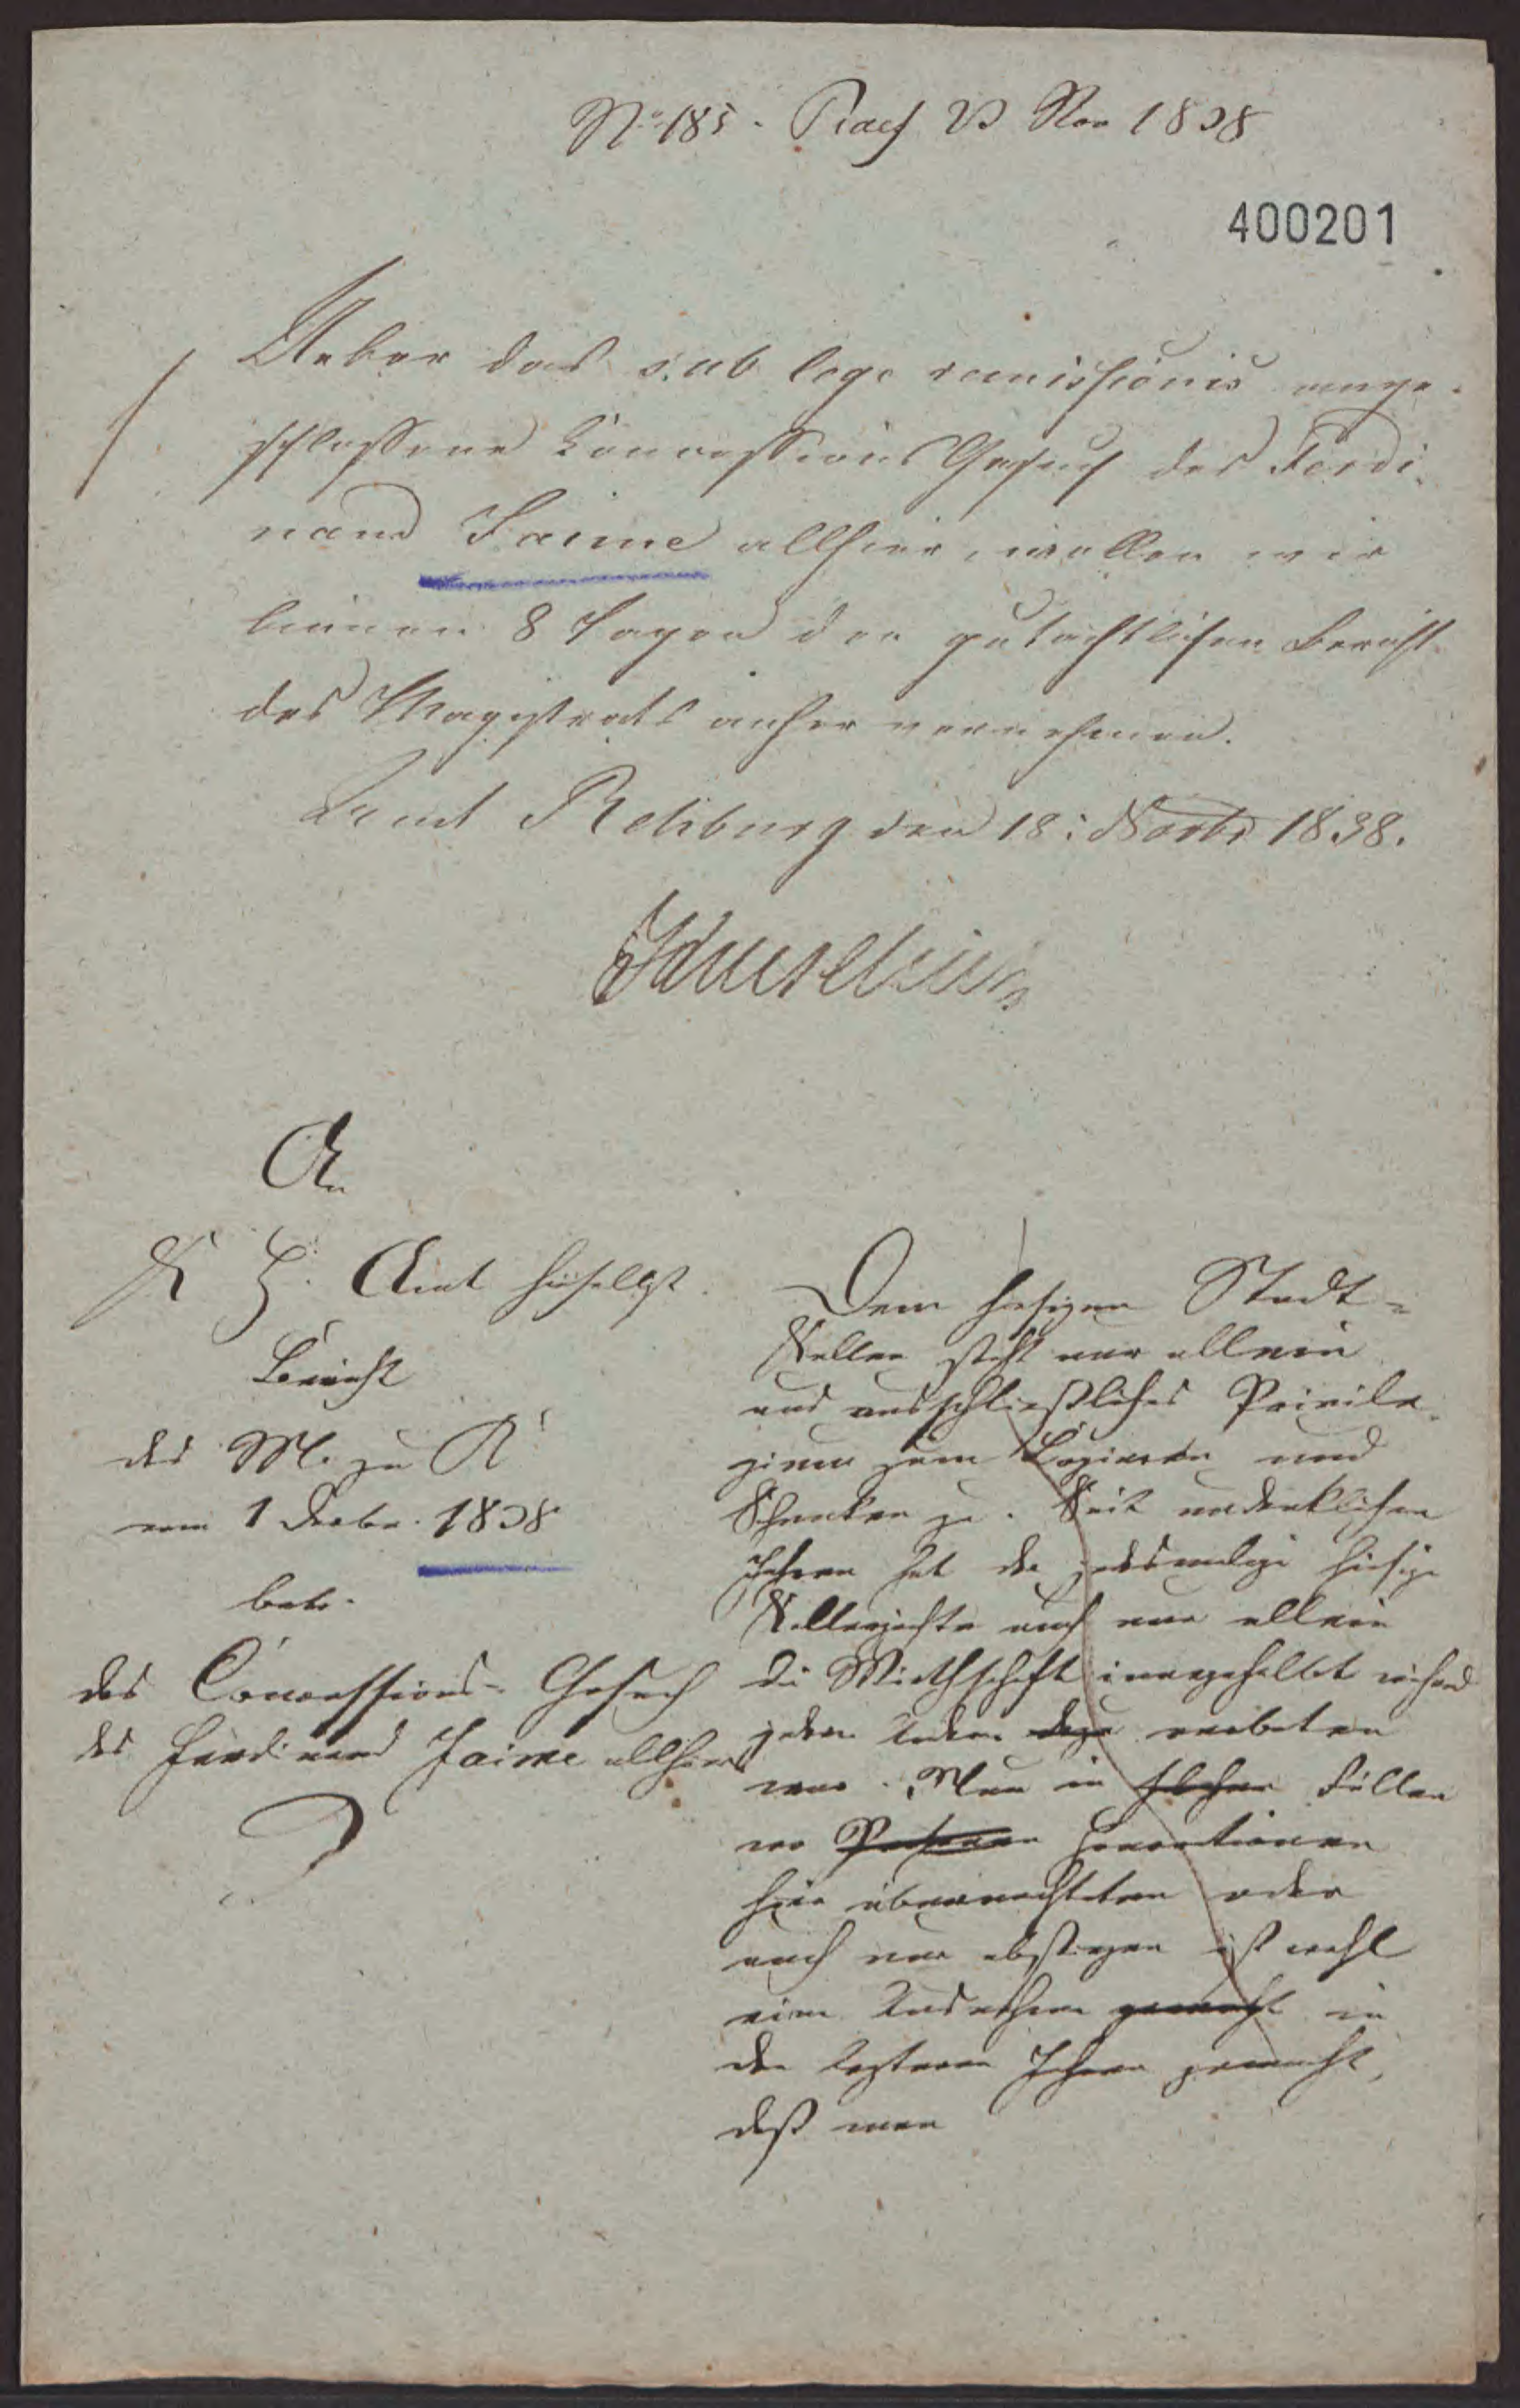 No 185. Praes 23 Nov 1838
400201
Ueber das sub lege remissionis ange-
schlossene Concessions Gesuch des Ferdi-
nand Jaime allhier, wollen wir
binnen 8 Tagen den gutachtlichen Bericht
des Magistrats anher vernehmen.
Amt Rehburg den 18: Novbr 1838.
An
K H. Amt hieselbst.
Bericht
des M. zu R
vom 1 Decbr. 1838
betr.
das Concessions-Gesuch
des Ferdinand Jaime allhier
Dem hiesigen Stadt-
Keller steht nur allein
und ausschließliches Privile-
gium zum Logieren und
Schenken zu. Seit undenklichen
Jahren hat der jedesmalige hiesige
Kellerpächter auch nur allein
die Wirthschaft während
jedem Andern dazu verboten
war. Nur in solchen Fällen
wo Personen Honoratioren
hier übernachteten oder
auch nur abstiegen ist wohl
eine Ausnahme gemacht in
den letzteren Jahren gemacht,
daß man